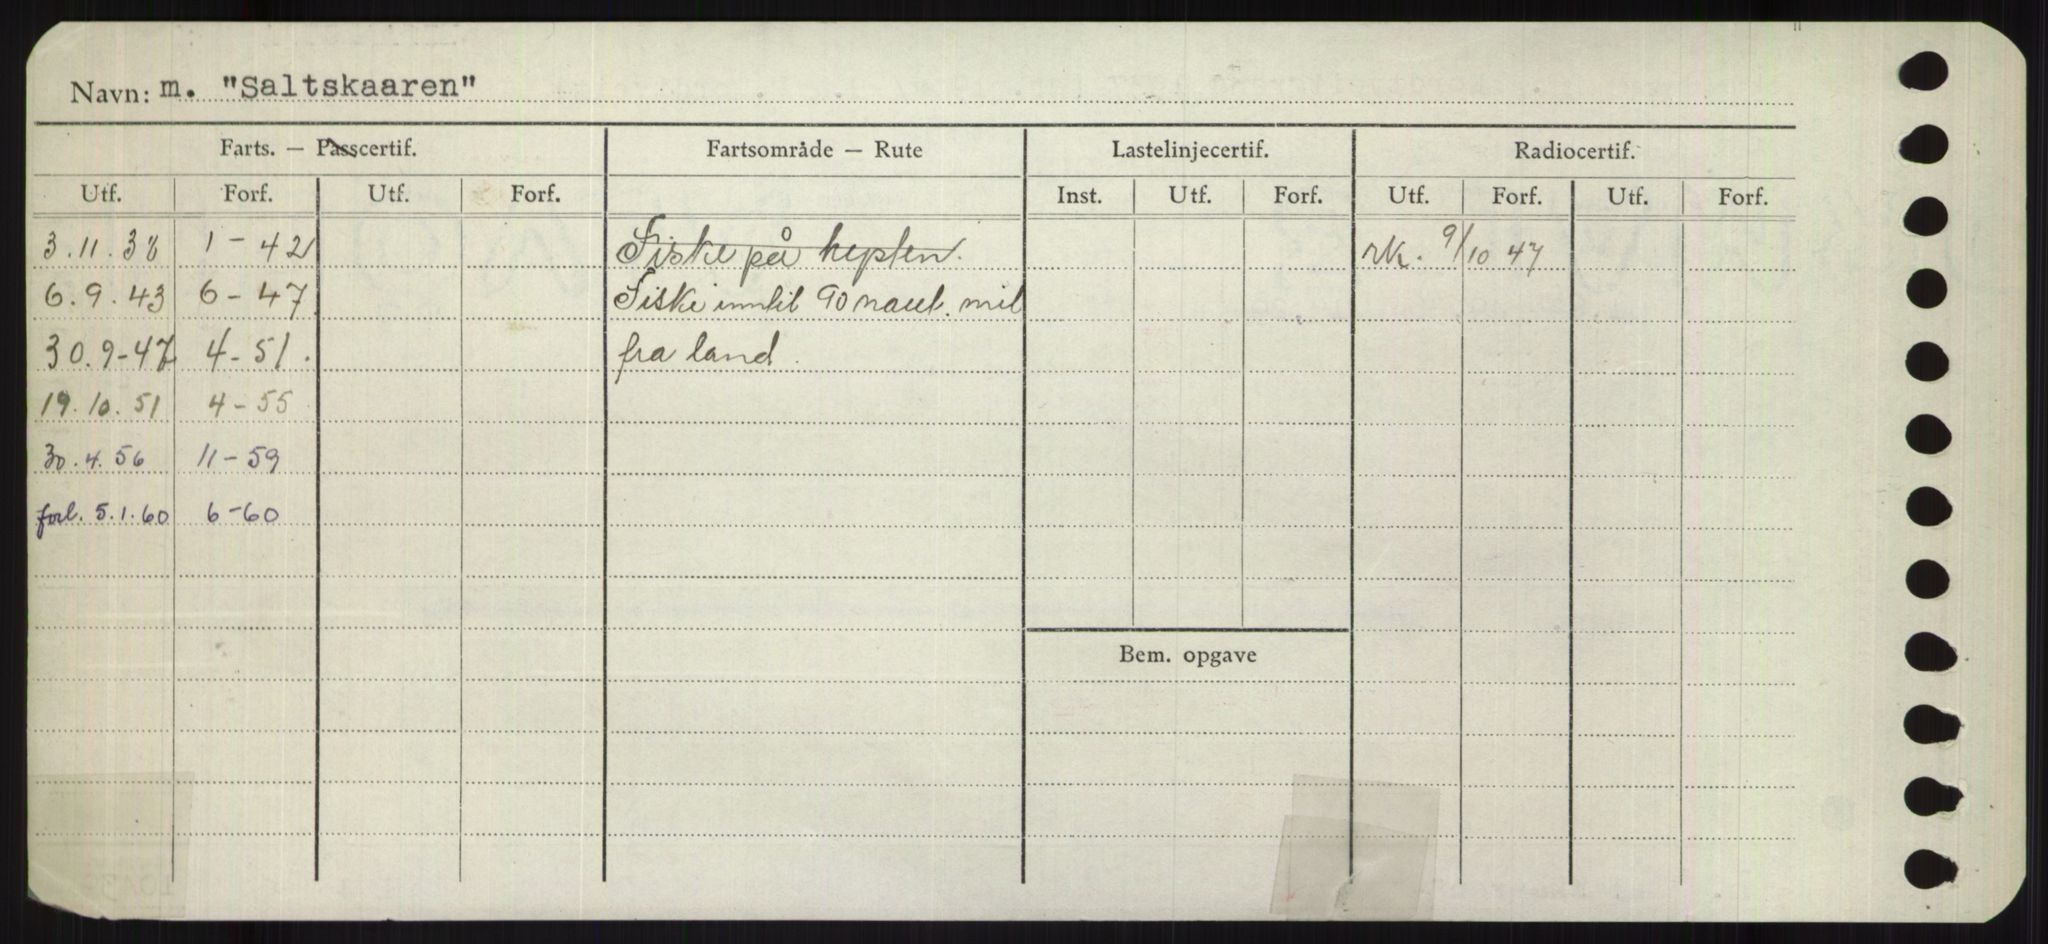 Navn: m. "Saltskaaren"
Farts. — Passcertif. Fartsområde — Rute Lastelinjecertif. Radiocertif.
Utf. Forf. Utf. Forf. Inst. Utf. Forf. Utf. Forf. Utf. Forf.
3.11.38 1 - 42 Fiske på kysten. rk. 9/10 47
6.9.43 6 - 47 Fiske inntil 90 naut. mil
30.9-47 4 - 51. fra land.
19.10.51 4 - 55
30.4.56 11 - 59
forl. 5.1.60 6 - 60
Bem. opgave